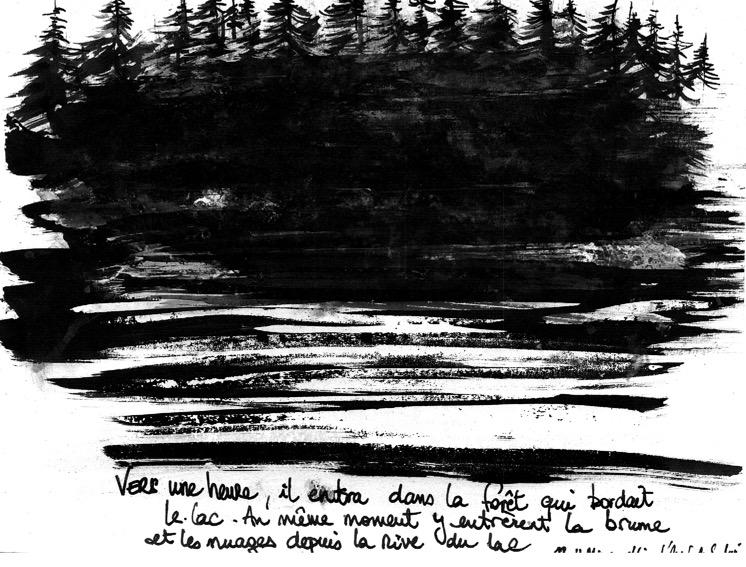 Vers une heure, il entra dans la forêt qui bordait
le lac. Au même moment y entrèrent la brume
et les nuages depuis la rive du lac